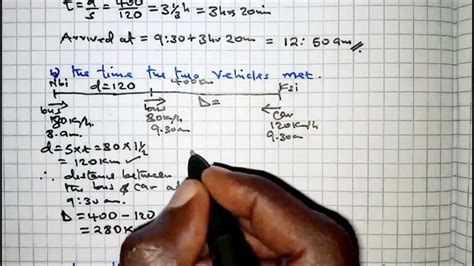 t = d/s = 400/120 = 3 1/3 h = 3hrs 20min
Arrived at = 9:30 + 3hr 20m = 12:50am
b) The time the two vehicles met.
400km
Nbi d=120 Ksi
D=
bus bus car
80km/h 80km/h 120km/h
8.am 9.30am 9.30am
d = s x t = 80 x 1 1/2
= 120km
∴ distance between
the bus & car at
9:30am
D = 400 - 120
= 280k